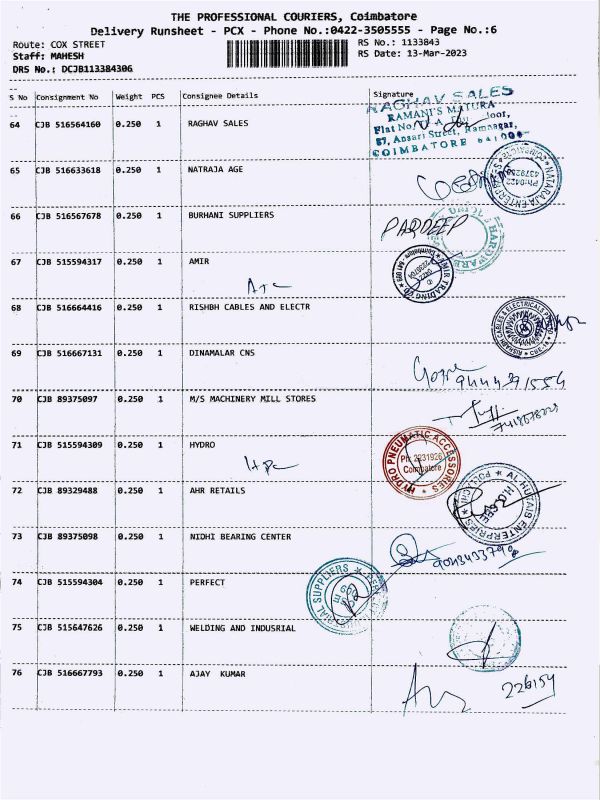 THE PROFESSIONAL COURIERS, Coimbatore
Delivery Runsheet - PCX - Phone No.:0422-3505555 - Page No.:6
Route: COX STREET
RS No.: 1133843
Staff: MAHESH
RS Date: 13-Mar-2023
DRS No.: DCJB113384306
S No Consignment No Weight PCS Consignee Details Signature
RAGHAV SALES
RAMANI'S MATURA
57, Ansari Street, Ramnagar,
COIMBATORE
64 CJB 516564160 0.250 1 RAGHAV SALES
65 CJB 516633618 0.250 1 NATRAJA AGE
NATARAJ ENTERPRISES
66 CJB 516567678 0.250 1 BURHANI SUPPLIERS
PARDEEP
HARDWARE
67 CJB 515594317 0.250 1 AMIR
AMIR TRADING CO
68 CJB 516664416 0.250 1 RISHBH CABLES AND ELECTR
RISHABH CABLES & ELECTRICALS
69 CJB 516667131 0.250 1 DINAMALAR CNS
70 CJB 89375097 0.250 1 M/S MACHINERY MILL STORES
71 CJB 515594309 0.250 1 HYDRO
HYDRO PNEUMATIC ACCESSORIES
Ph: 2331926
Coimbatore
72 CJB 89329488 0.250 1 AHR RETAILS
AL HUNAIS ENTERPRIES
73 CJB 89375098 0.250 1 NIDHI BEARING CENTER
74 CJB 515594304 0.250 1 PERFECT
SUPPLIERS
75 CJB 515647626 0.250 1 WELDING AND INDUSRIAL
76 CJB 516667793 0.250 1 AJAY KUMAR
226154